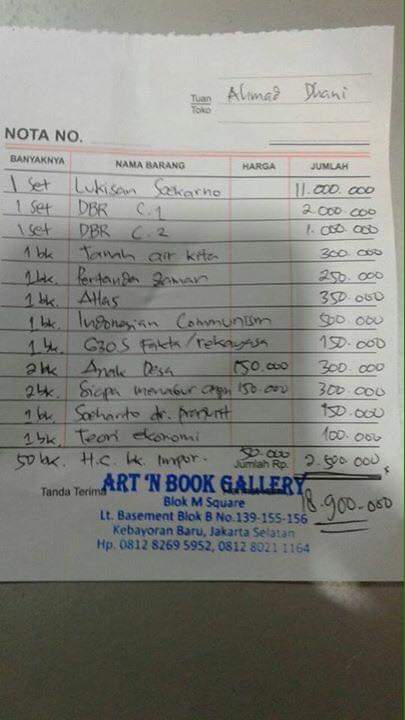 Tuan
Toko
Ahmad Dhani
NOTA NO.
BANYAKNYA NAMA BARANG HARGA JUMLAH
1 Set Lukisan Soekarno 11.000.000
1 Set DBR C.1 2.000.000
1 Set DBR C.2 1.000.000
1 bk Tanah air kita 300.000
1 bk. Pertanda Zaman 250.000
1 bk. Atlas 350.000
1 bk. Indonesian Communism 500.000
1 bk. G30S Fakta/rekayasa 150.000
2 bk Anak Desa 150.000 300.000
2 bk. Siapa menabur angin 150.000 300.000
1 bk. Soeharto dr. 150.000
1 bk. Teori ekonomi 100.000
50 bk. H.C. bk. Impor. 50.000 2.500.000
Jumlah Rp.
Tanda Terima
18.900.000
ART 'N BOOK GALLERY
Blok M Square
Lt. Basement Blok B No.139-155-156
Kebayoran Baru, Jakarta Selatan
Hp. 0812 8269 5952, 0812 8021 1164